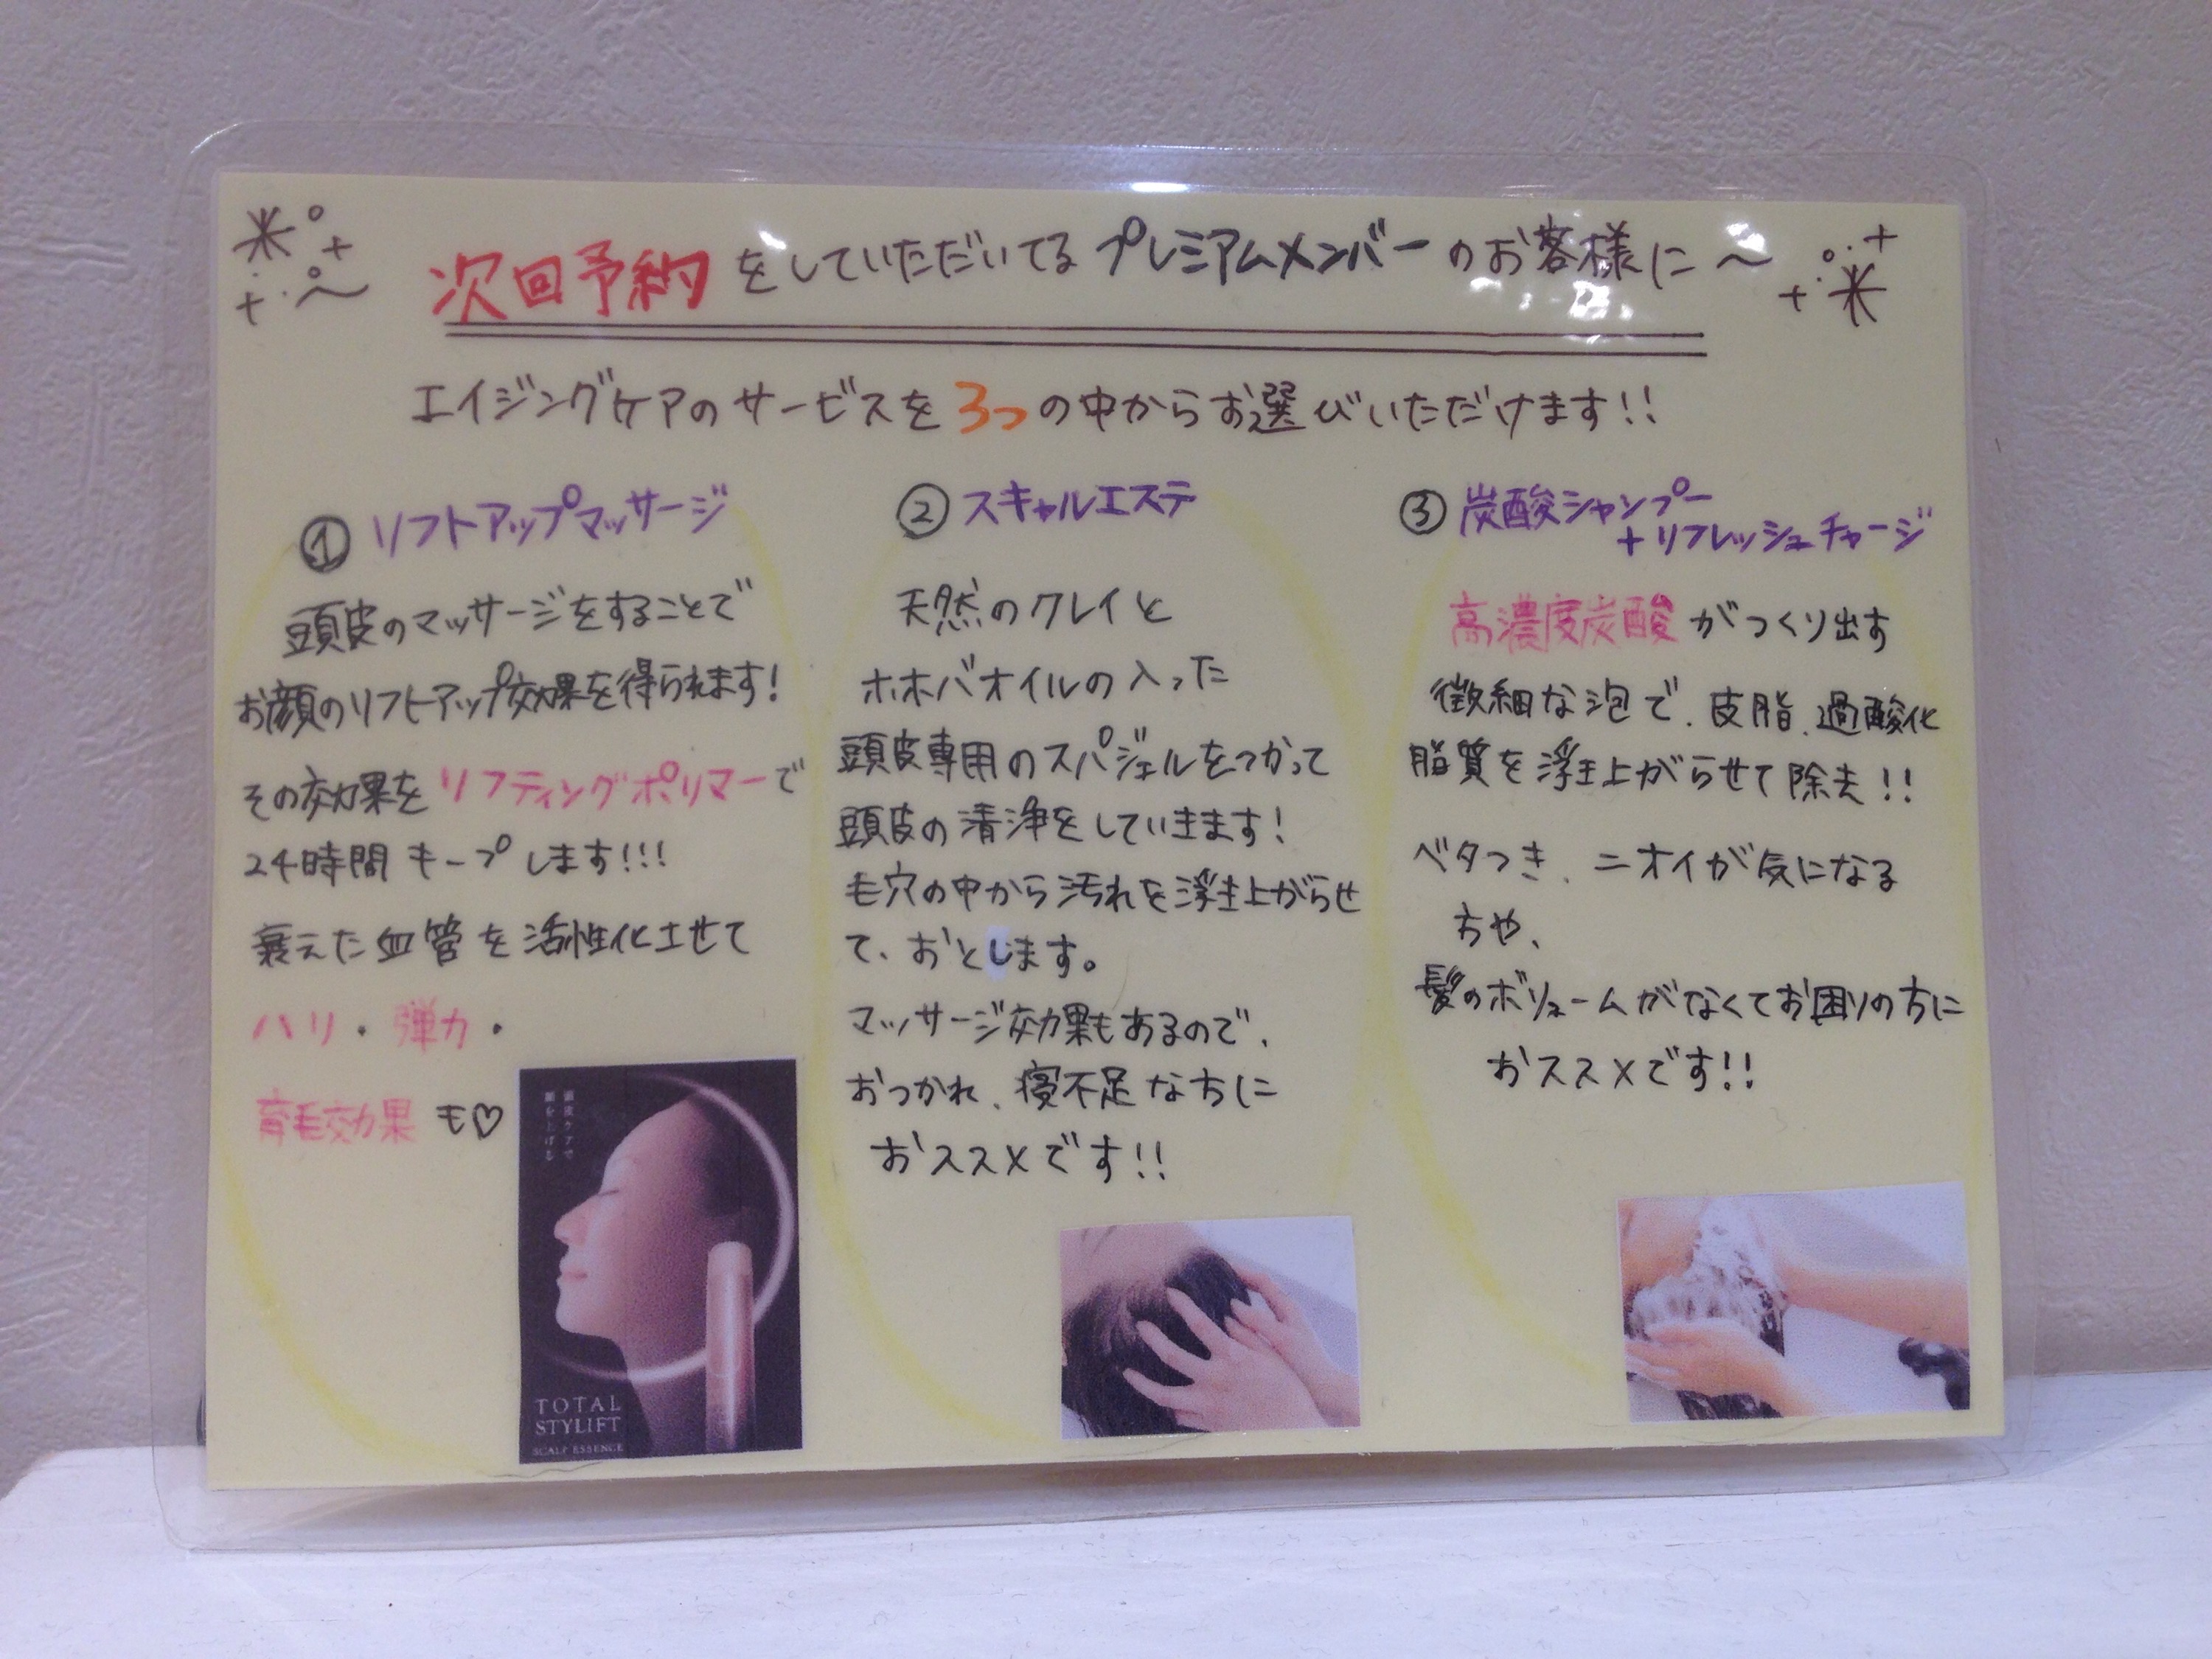 次回予約をしていただいてるプレミアムメンバーのお客様に〜
エイジングケアのサービスを3つの中からお選びいただけます!!
① リフトアップマッサージ
頭皮のマッサージをすることで
お顔のリフトアップ効果を得られます!
その効果をリフティングポリマーで
24時間キープします!!!
衰えた血管を活性化させて
ハリ・弾力・
育毛効果も♡
頭皮ケアで
顔を上げる
TOTAL
STYLIFT
SCALP ESSENCE
② スキャルエステ
天然のクレイと
ホホバオイルの入った
頭皮専用のスパジェルをつかって
頭皮の清浄をしていきます!
毛穴の中から汚れを浮き上がらせ
て、おとします。
マッサージ効果もあるので、
おつかれ、寝不足な方に
おススメです!!
③ 炭酸シャンプー
+リフレッシュチャージ
高濃度炭酸がつくり出す
微細な泡で、皮脂、過酸化
脂質を浮き上がらせて除去!!
ベタつき、ニオイが気になる
方や、
髪のボリュームがなくてお困りの方に
おススメです!!